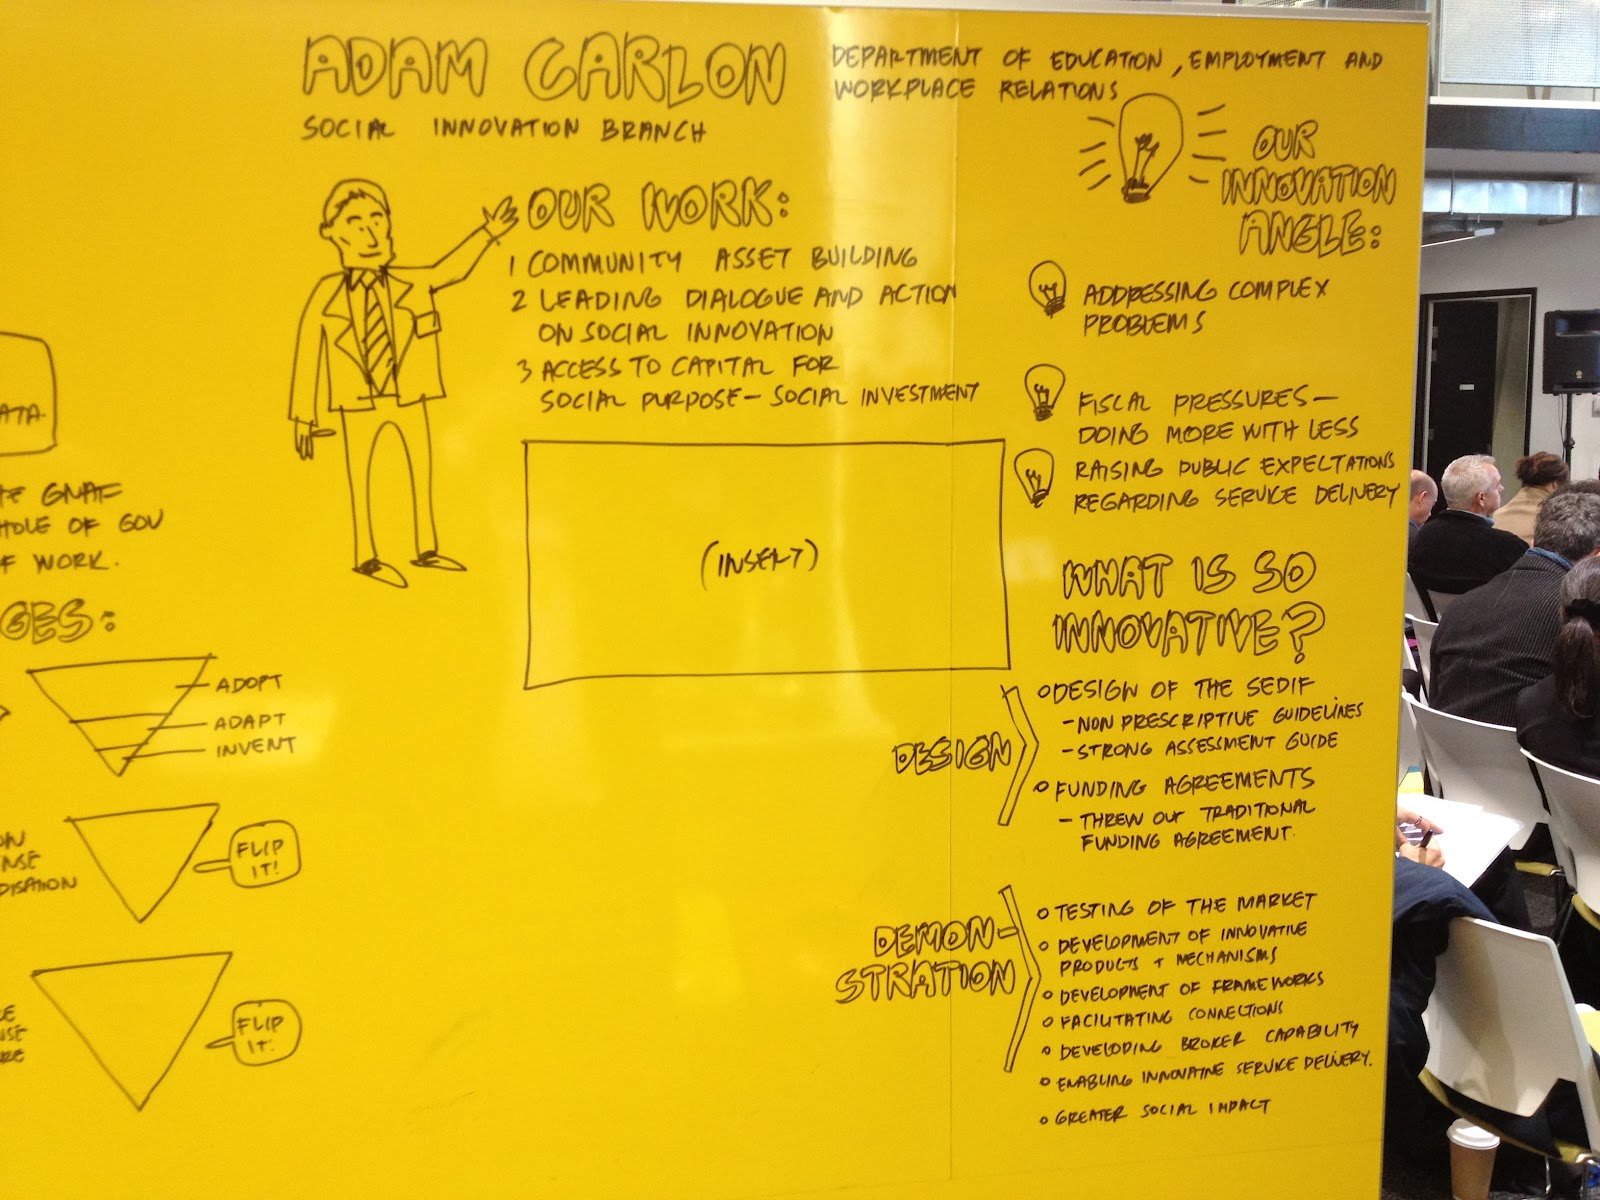 ADAM CARLON
DEPARTMENT OF EDUCATION, EMPLOYMENT AND
WORKPLACE RELATIONS
SOCIAL INNOVATION BRANCH
OUR WORK:
1 COMMUNITY ASSET BUILDING
2 LEADING DIALOGUE AND ACTION
ON SOCIAL INNOVATION
3 ACCESS TO CAPITAL FOR
SOCIAL PURPOSE - SOCIAL INVESTMENT
(INSERT)
OUR
INNOVATION
ANGLE:
ADDRESSING COMPLEX
PROBLEMS
FISCAL PRESSURES -
DOING MORE WITH LESS
RAISING PUBLIC EXPECTATIONS
REGARDING SERVICE DELIVERY
WHAT IS SO
INNOVATIVE?
DESIGN
DESIGN OF THE SEDIF
- NON PRESCRIPTIVE GUIDELINES
- STRONG ASSESSMENT GUIDE
FUNDING AGREEMENTS
- THREW OUT TRADITIONAL
FUNDING AGREEMENT.
DEMON-
STRATION
TESTING OF THE MARKET
DEVELOPMENT OF INNOVATIVE
PRODUCTS + MECHANISMS
DEVELOPMENT OF FRAMEWORKS
FACILITATING CONNECTIONS
DEVELOPING BROKER CAPABILITY
ENABLING INNOVATIVE SERVICE DELIVERY.
GREATER SOCIAL IMPACT
ATA.
GNAF
HOLE OF GOV
F WORK.
GES:
ADOPT
ADAPT
INVENT
ON
NSE
DISATION
FLIP
IT!
FLIP
IT!